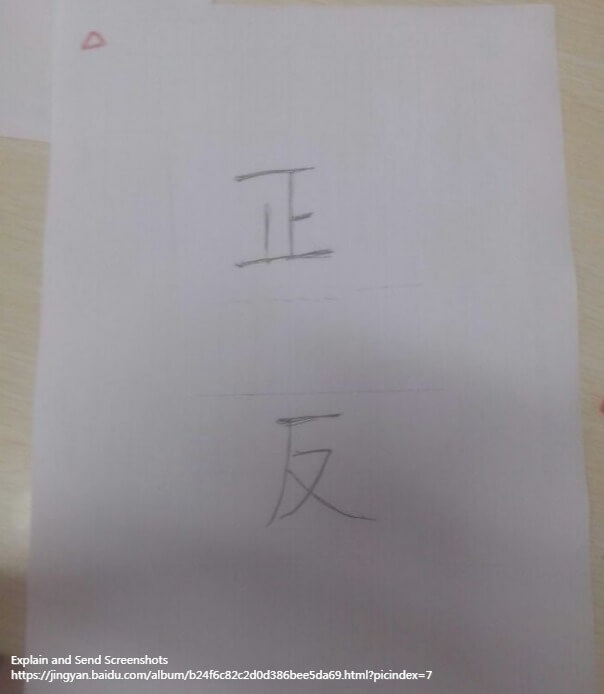 正
反
Explain and Send Screenshots
https://jingyan.baidu.com/album/b24f6c82c2d0d386bee5da69.html?picindex=7